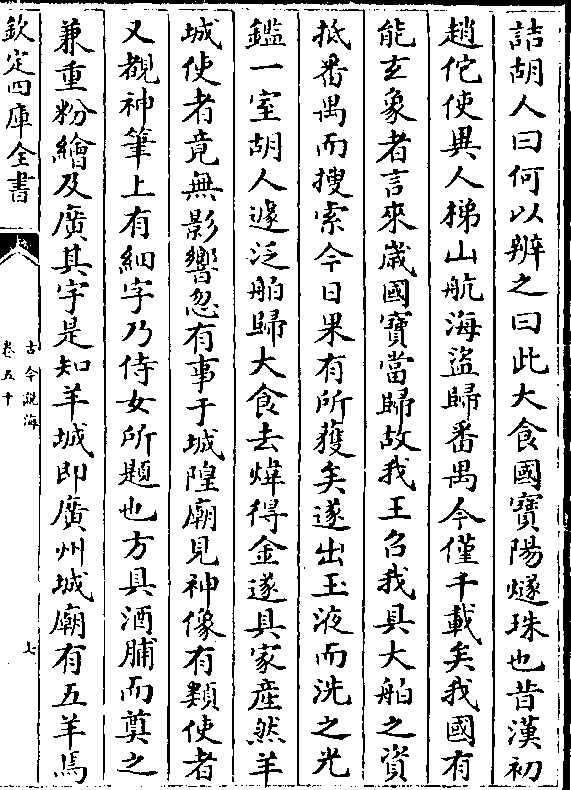 詰胡人曰何以辨之曰此大食國寶陽燧珠也昔漢初
趙佗使異人梯山航海盜歸番禺今僅千載矣我國有
能𤣥象者言來嵗國寶當歸故我王召我具大舶之資
抵番禺而搜索今日果有所獲矣遂出玉液而洗之光
鑑一室胡人遽泛舶歸大食去煒得金遂具家產然羊
城使者竟無影響忽有事于城隍廟見神像有類使者
又覩神筆上有細字乃侍女所題也方具酒脯而奠之
兼重粉繪及廣其宇是知羊城即廣州城廟有五羊焉
欽定四庫全書
古今說海
卷五十
七